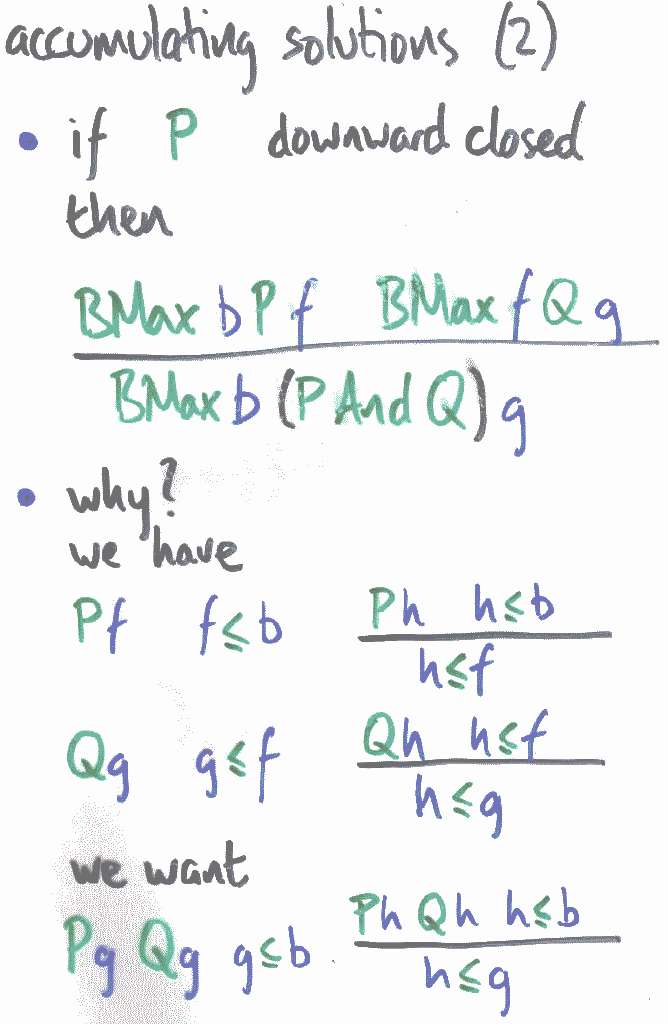 accumulating solutions (2)
• if P downward closed
then
BMax b P f BMax f Q g
BMax b (P And Q) g
• why?
we have
Pf f ≤ b Ph h ≤ b
h ≤ f
Qg g ≤ f Qh h ≤ f
h ≤ g
we want
Pg Qg g ≤ b Ph Qh h ≤ b
h ≤ g